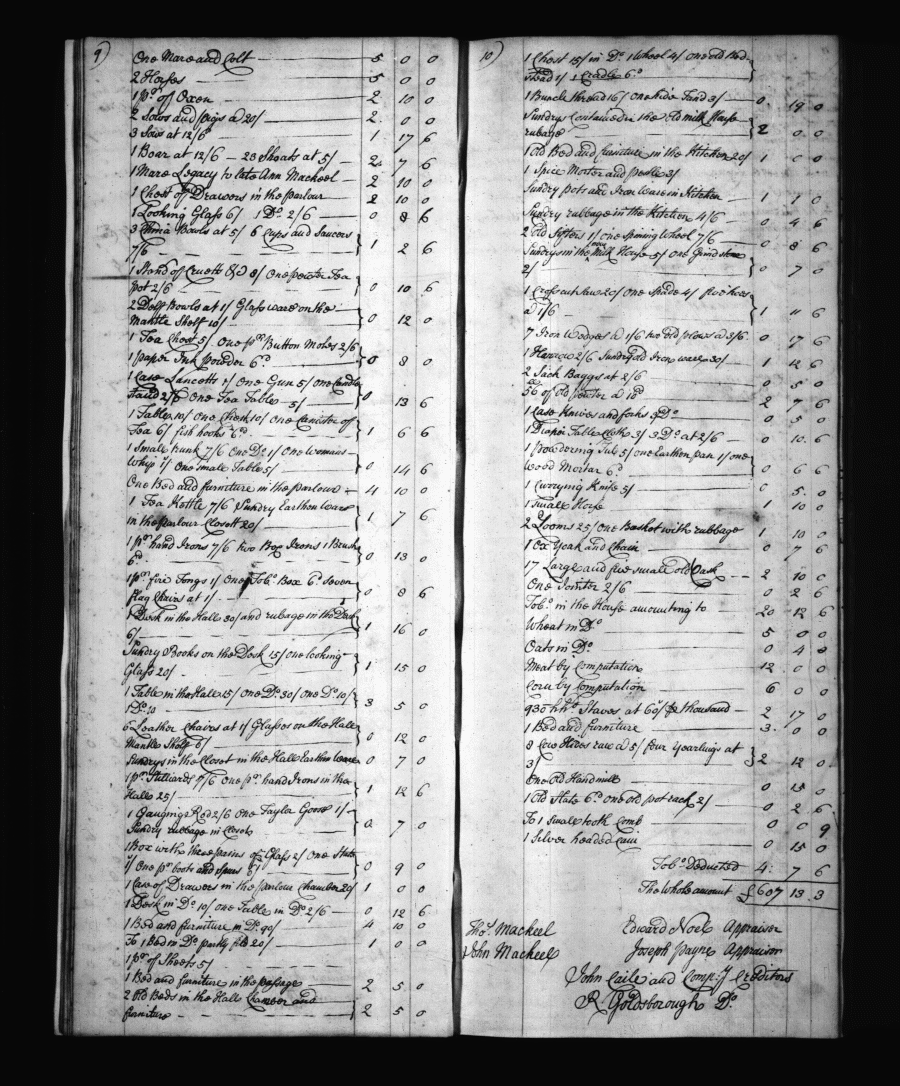 9)
One Mare and Colt — 5 0 0
2 Horses — 5 0 0
1 pr. of Oxen — 2 10 0
2 Sows and pigs a 20/ — 2 0 0
3 Sows at 12/6 — 1 17 6
1 Boar at 12/6 — 23 Shoats at 5/ — 7 6
1 Mare Legacy to late Ann Mackeel — 2 10 0
1 Chest of Drawers in the parlour — 2 10 0
1 Looking Glass 6/ 1 Do. 2/6 — 0 8 6
3 China Bowls at 5/ 6 Cups and Saucers
7/6 — 1 2 6
1 Stand of Cruetts &c 8/ One pewter Tea
pot 2/6 — 0 10 6
2 Delf Bowls at 1/ Glass ware on the
Mantle Shelf 10/ — 0 12 0
1 Tea Chest 5/. One pr. Button Molds 2/6
1 paper Ink powder 6d. — 0 8 0
1 Case Lancetts 1/ One Gun 5/ one Candle
Stand 2/6 One Tea Table 5/ — 0 13 6
1 Table 10/ One Chest 10/ One Canister of
Tea 6/ fish hooks 6d — 1 6 6
1 Small trunk 7/6 One Do. 1/ One womans
Whip 1/ One small Table 5/ — 0 14 6
One Bed and furniture in the parlour — 4 10 0
1 Tea Kettle 7/6 Sundry Earthen Ware
in the parlour Closett 20/ — 1 7 6
1 pr. hand Irons 7/6 two Box Irons 1 Brush
6d. — 0 13 0
1 pr. fire Tongs 1/ One Tobo. Box 6d. Seven
flag Chairs at 1/ — 0 8 6
1 Desk in the Hall 30/ and rubage in the Desk
6/ — 1 16 0
Sundry Books on the Desk 15/ one looking
Glass 20/ — 1 15 0
1 Table in the Hall 15/ One Do. 30/ One Do. 10/
1 Do. 10 — 3 5 0
6 Leather Chairs at 1/ Glasses on the Hall
Mantle Shelf 6/ — 0 12 0
Sundrys in the Closet in the Hall Earthen ware — 0 7 0
1 pr. Stilliards 7/6 One pr. hand Irons in the
Hall 25/ — 1 12 6
1 Gauging Rod 2/6 One Taylor Goose 1/
Sundry rubbage in Closets — 0 7 0
1 Box with three pains of Glass 2/ One Slate
1/ One pr. boots and Spurs 6/ — 0 9 0
1 Case of Drawers in the parlour Chamber 20/ — 1 0 0
1 Desk in Do. 10/ one Table in Do. 2/6 — 0 12 6
1 Bed and furniture in Do. 90/ — 4 10 0
To 1 Bed in Do. 20/ — 1 0 0
1 pr. of Sheets 5/
1 Bed and furniture in the passage — 2 5 0
2 Old Beds in the Hall Chamber and
furniture — 2 5 0
10)
1 Chest 15/ in Do. 1 Wheel 4/ One old Bed
stead 1/ 1 Cradle 6d.
1 Buncle thread 16/ one hide Tand 3/ — 0 19 0
Sundry Contained in the Old milk House
rubage — 2 0 0
1 Old Bed and furniture in the Kitchen 20/ — 1 0 0
1 Spice Morter and pestle 3/
Sundry pots and Iron Ware in Kitchen — 1 1 0
Sundry rubbage in the Kitchen 4/6 — 0 4 6
2 Old Sifters 1/ one Spining Wheel 7/6 — 0 8 6
Sundrys in the new Milk House 5/ One Grind stone
2/ — 0 7 0
1 Cross cut Saw 20/ One Spade 4/ five hoes
a 1/6 — 1 11 6
7 Iron Wedges a 1/6 two old plows a 3/6 — 0 17 6
1 Harrow 2/6 Sundry old Iron ware 30/ — 1 12 6
2 Sack Baggs at 2/6 — 0 5 0
56 lb of Old pewter a 10d — 2 7 6
1 Case knives and forks 5 Do — 0 5 0
1 Diaper Table Cloth 3/ 3 Do. at 2/6 — 0 10 6
1 Powdering Tub 5/ one Earthen pan 1/ one
Wood Mortar 6d — 0 6 6
1 Currying Knife 5/ — 0 5 0
1 Small Horse — 1 10 0
2 Looms 25/ One Basket with rubbage — 1 10 0
1 Ox Yoak and Chain — 0 7 6
17 Large and five small old Cask — 2 10 0
One Jointer 2/6 — 0 2 6
Tobo. in the House amounting to — 20 12 6
Wheat in Do — 5 0 0
Oats in Do — 0 4 0
Meat by Computation — 12 0 0
Corn by Computation — 6 0 0
930 hhd. Staves at 60/ p thousand — 2 17 0
1 Bed and furniture — 3 0 0
8 Cow Hides raw a 5/ four Yearlings at
3/ — 2 12 0
One Old Handmill — 0 15 0
1 Old Slate 6d. one old pot rack 2/ — 0 2 6
To 1 Small tooth Comb — 0 0 9
1 Silver headed Cain — 0 15 0
Tobo. Deducted 4 7 6
The Whole amount £607 13 3
Thos. Mackeel Edward Noel Appraiser
John Mackeel Joseph Payne Appraisor
John Caile and Compy. Creditors
R Goldsborough Do.